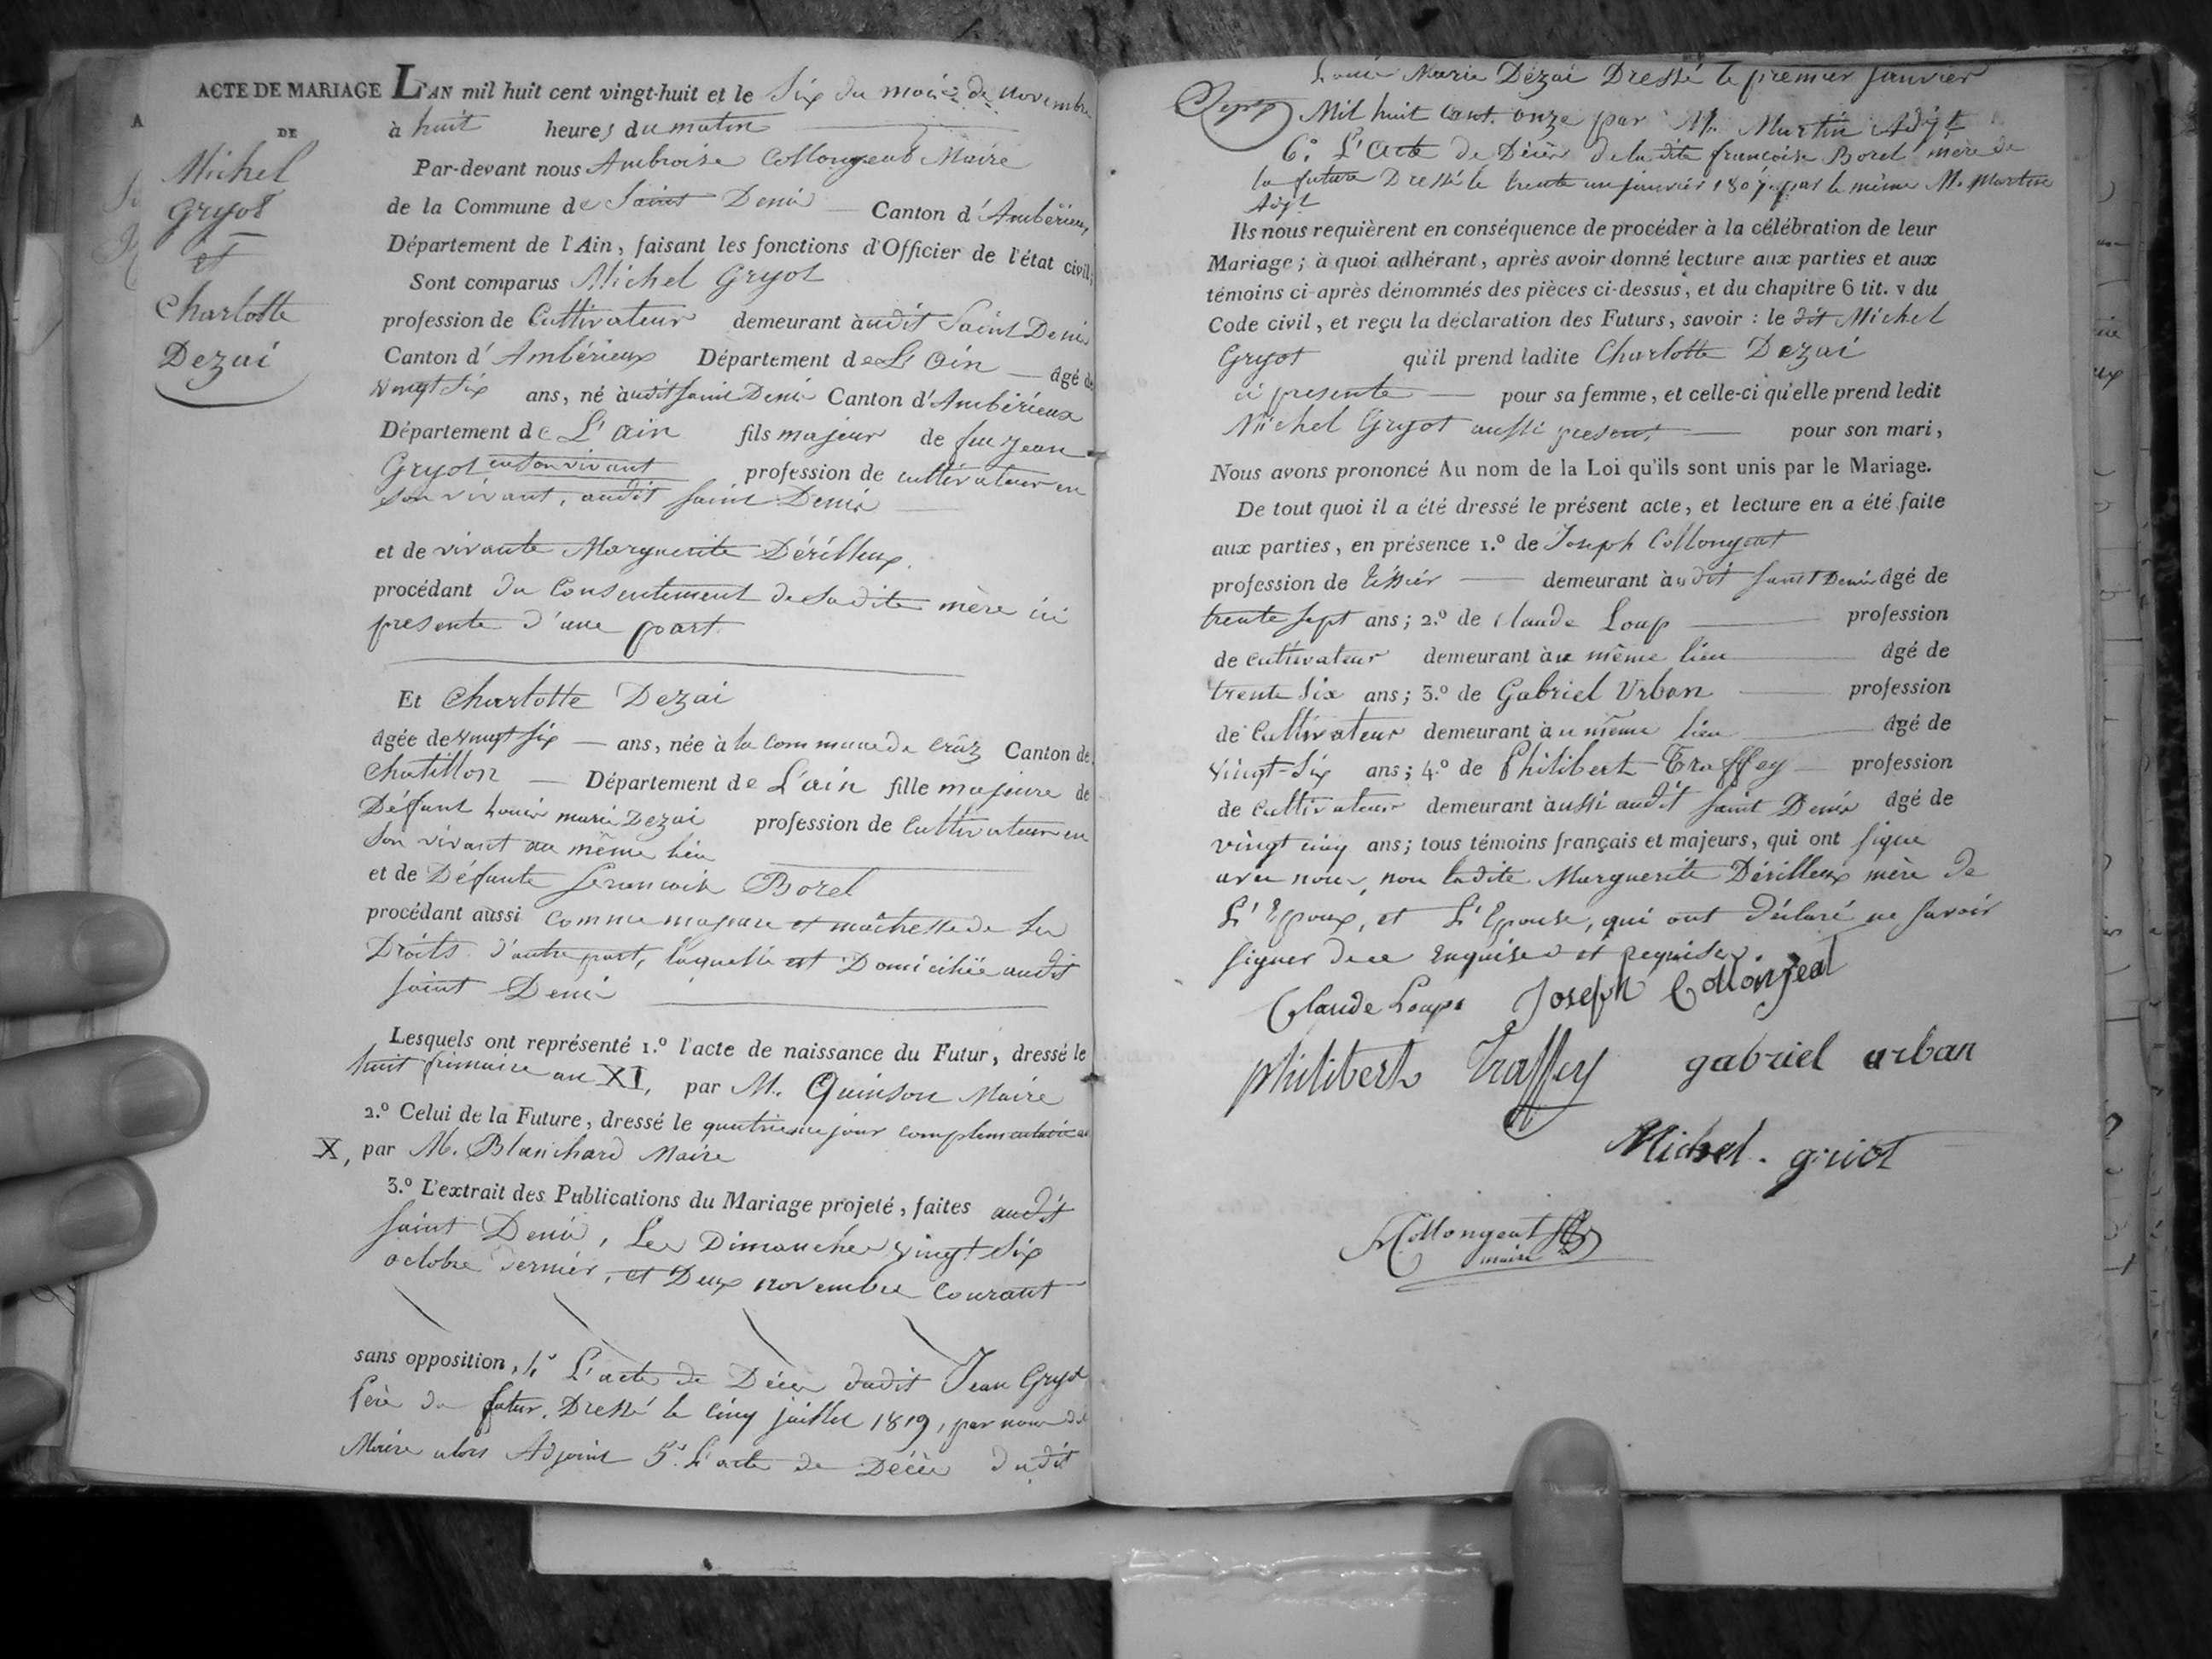 ACTE DE MARIAGE L'AN mil huit cent vingt-huit et le Six du mois de novembre
DE
Michel
Gryot
et
Charlotte
Dezai
à huit heures du matin
Par-devant nous Ambroise Collongeat Maire
de la Commune de Saint Denis Canton d'Ambérieux
Département de l'Ain, faisant les fonctions d'Officier de l'état civil;
Sont comparus Michel Gryot
profession de Cultivateur demeurant audit Saint Denis
Canton d'Ambérieux Département de L'Ain âgé de
vingt Six ans, né audit Saint Denis Canton d'Ambérieux
Département de L'ain fils majeur de feu Jean
Gryot en son vivant profession de cultivateur en
son vivant, audit Saint Denis
et de vivante Marguerite Dérilleux
procédant du Consentement de sadite mère ici
presente d'une part
Et Charlotte Dezai
âgée de vingt six ans, née à la commune de Crâz Canton de
Chatillon Département de L'ain fille majeure de
Défunt Louis marie Dezai profession de Cultivateur en
Son vivant au même lieu
et de Défunte francoise Borel
procédant aussi comme majeure et maîtresse de ses
Droits d'autre part, laquelle est Domiciliée audit
saint Denis
Lesquels ont représenté 1.º l'acte de naissance du Futur, dressé le
huit frimaire an XI, par M. Quinson Maire
2.º Celui de la Future, dressé le quatrieme jour complementaire an
X, par M. Blanchard Maire
3.º L'extrait des Publications du Mariage projeté, faites audit
saint Denis, Les Dimanches vingt Six
octobre dernier, et Deux novembre Courant
sans opposition, 4º L'acte de Décès dudit Jean Gryot
Père du futur, Dressé le cinq juillet 1819, par nous dit
Maire alors Adjoint 5º L'acte de Décès dudit
Louis Marie Dézai Dressé le premier Janvier
Mil huit cent onze par M. Martin Adjt
6º L'Acte de Décès de la dite françoise Borel mère de
la future Dressé le trente un janvier 1807 par le même M. Martin
Adjt
Ils nous requièrent en conséquence de procéder à la célébration de leur
Mariage; à quoi adhérant, après avoir donné lecture aux parties et aux
témoins ci-après dénommés des pièces ci-dessus, et du chapitre 6 tit. v du
Code civil, et reçu la déclaration des Futurs, savoir : le dit Michel
Gryot qu'il prend ladite Charlotte Dezai
ci presente pour sa femme, et celle-ci qu'elle prend ledit
Michel Gryot aussi present pour son mari,
Nous avons prononcé Au nom de la Loi qu'ils sont unis par le Mariage.
De tout quoi il a été dressé le présent acte, et lecture en a été faite
aux parties, en présence 1.º de Joseph Collongeat
profession de tissier demeurant audit Saint Denis âgé de
trente sept ans; 2.º de Claude Loup profession
de cultivateur demeurant au même lieu âgé de
trente Six ans; 3.º de Gabriel Urban profession
de Cultivateur demeurant au même lieu âgé de
vingt-Six ans; 4.º de Philibert Traffey profession
de cultivateur demeurant aussi audit saint Denis âgé de
vingt cinq ans; tous témoins français et majeurs, qui ont signé
avec nous, non ladite Marguerite Dérilleux mère de
L'Epoux, et L'Epouse, qui ont déclaré ne savoir
signer de ce enquises et requises.
Claude Loup Joseph Collonjeat
philibert Traffey gabriel urban
Michel griot
Collongeat
maire